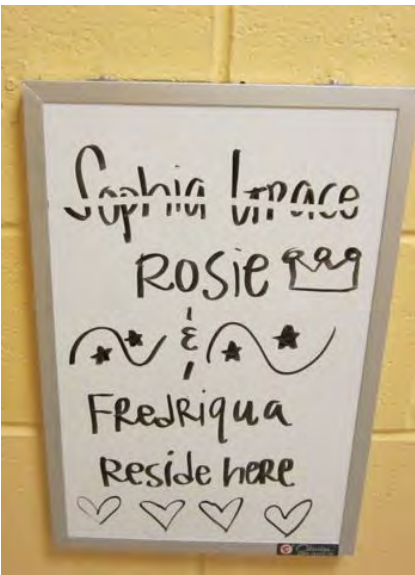 Sophia Grace
Rosie
&
FRedRiqua
Reside here